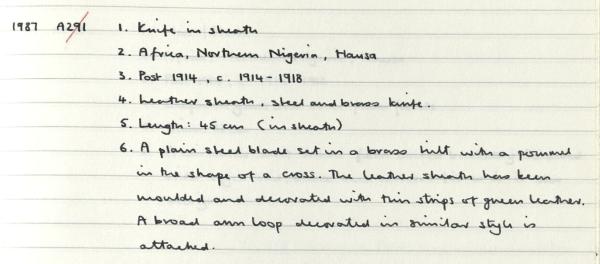 1987 A291 1. Knife in sheath
2. Africa, Northern Nigeria, Hausa
3. Post 1914, c. 1914-1918
4. Leather sheath, steel and brass knife.
5. Length: 45 cm (in sheath)
6. A plain steel blade set in a brass hilt with a pommel
in the shape of a cross. The leather sheath has been
moulded and decorated with thin strips of green leather.
A broad arm loop decorated in similar style is
attached.